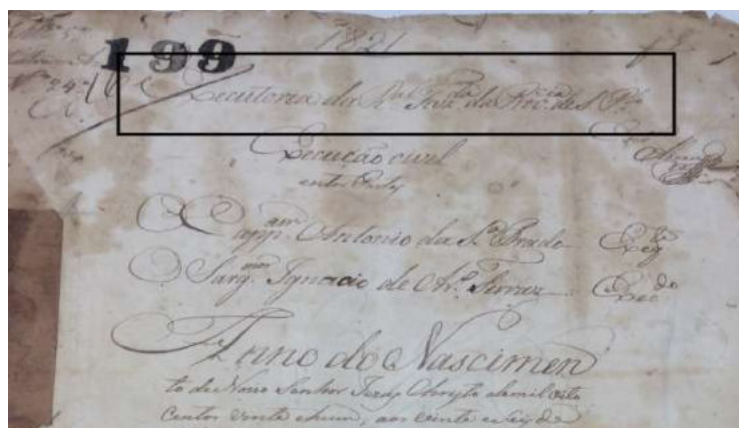 199
1821
Executoria da Rl. Fazda. da Procia. de S. Plo.
Execução civel
entre Ptes.
O Cappam. Antonio da Sa. Prado Exqte.
O Sargmor. Ignacio de Aro. Ferraz Execdo.
Anno do Nascimen
to de Nosso Senhor Jesus Christo de mil oito
centos vinte e hum, aos vinte e seis de